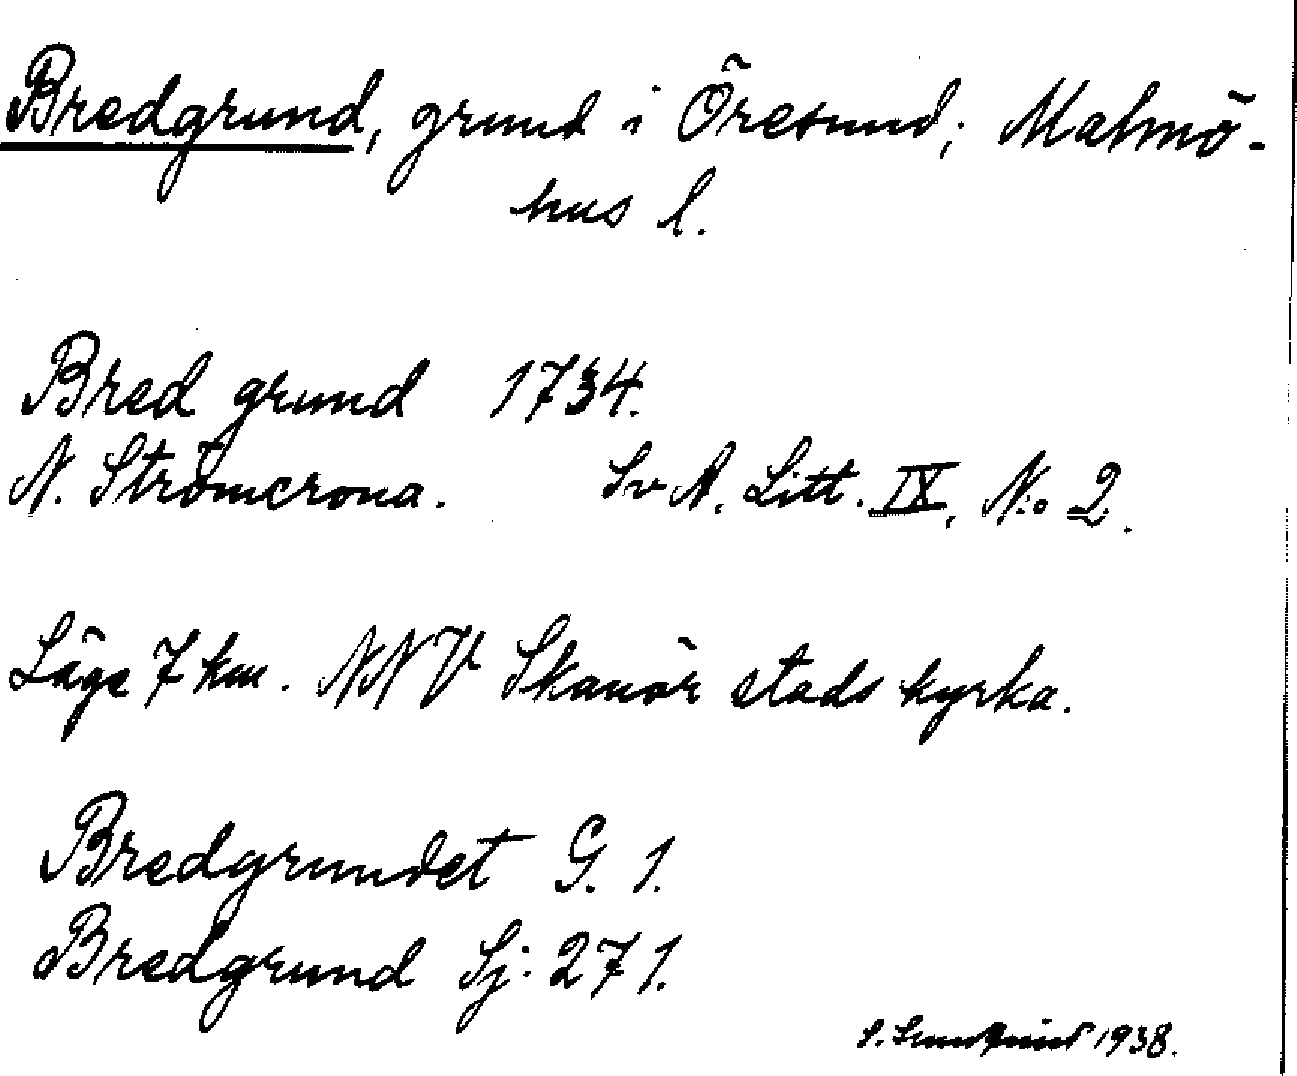 Bredgrund, grund i Öresund; Malmö-
hus l.
Bred grund 1734.
N. Strömcrona. Sv A. Litt. IX, No 2.
Läge 7 km. NNV Skanör stads kyrka.
Bredgrundet G. 1.
Bredgrund Sj. 271.
S. Sundquist 1938.